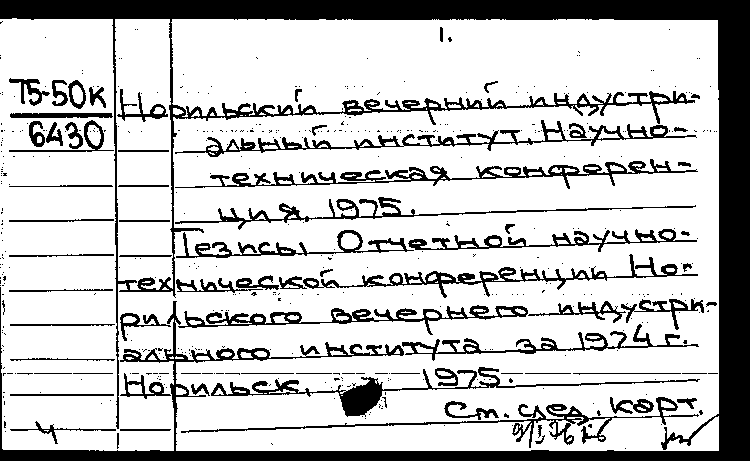 1.
75-50к
6430
Норильский вечерний индустри-
альный институт. Научно-
техническая конферен-
ция, 1975.
Тезисы Отчетной научно-
технической конференции Но-
рильского вечернего индустри-
ального института за 1974 г.
Норильск, 1975.
См. след. карт.
4